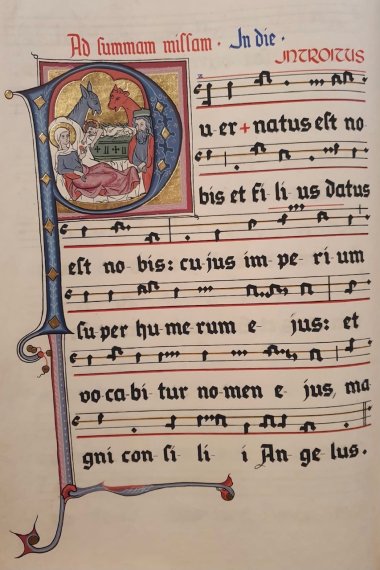 Ad summam missam. In die.
INTROITUS
Puer + natus est no
bis et fi- li- us datus
est no- bis: cujus im- pe- ri- um
super hu- me- rum e- jus: et
vo- ca- bi- tur no- men e- jus, ma
gni con- si- li- i An- ge- lus.